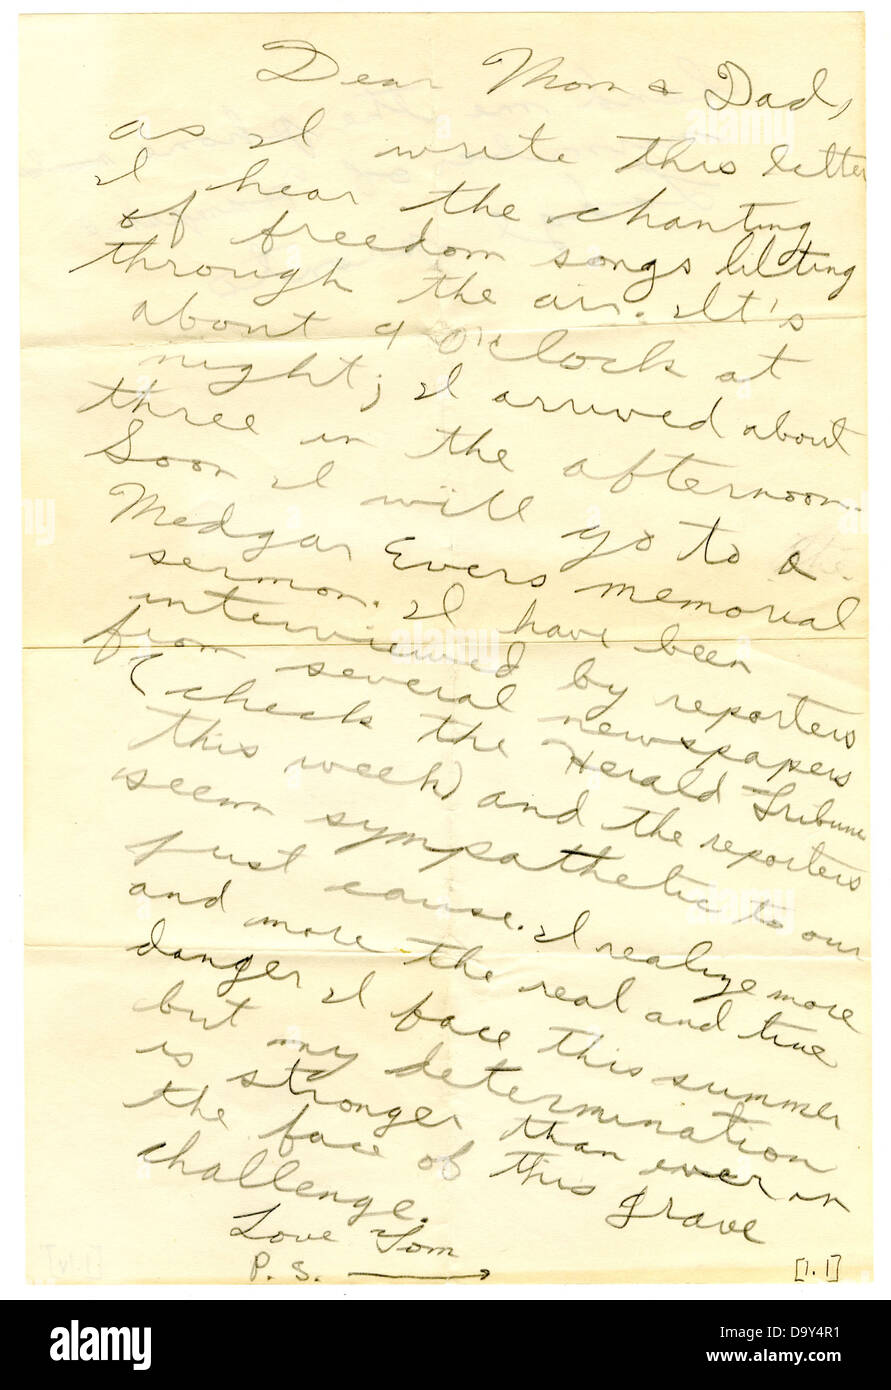 Dear Mom & Dad,
as I write this letter
I hear the chanting
of freedom songs lilting
through the air. It's
about 9 O'clock at
night; I arrived about
three in the afternoon.
Soon I will go to a
Medgar Evers memorial
sermon. I have been
interviewed by reporters
from several newspapers
(check the Herald Tribune
this week) and the reporters
seem sympathetic to our
just cause. I realize more
and more the real and true
danger I face this summer
but my determination
is stronger than ever in
the face of this grave
challenge.
Love Tom
P.S.
[1.1]
alamy
Image ID: D9Y4R1
www.alamy.com